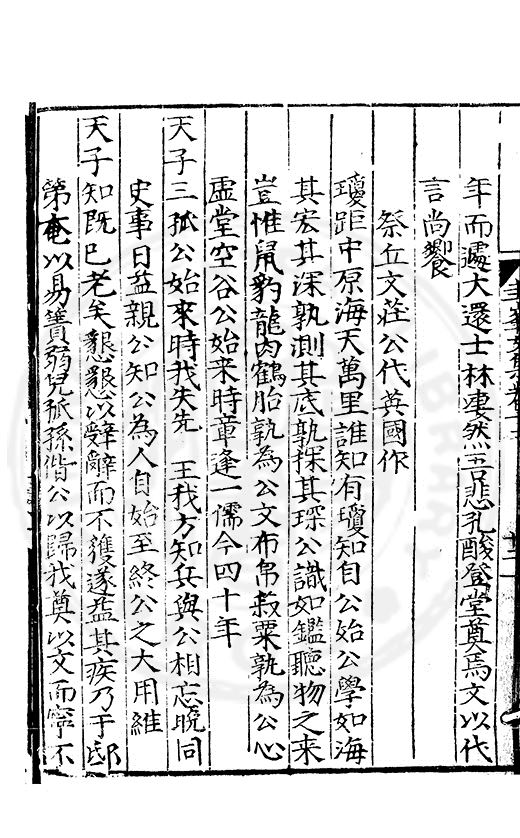 年而遽大還士林悽然吾悲孔酸登堂奠焉文以代
言尚饗
祭丘文莊公代英國作
瓊距中原海天萬里誰知有瓊知自公始公學如海
其宏其深孰測其底孰探其琛公識如鑑聽物之來
豈惟鼠豹龍肉鶴胎孰為公文布帛菽粟孰為公心
虛堂空谷公始來時章逢一儒今四十年
天子三孤公始來時我失先 王我方知兵與公相忘晩同
史事日益親公知公為人自始至終公之大用維
天子知既已老矣懇懇以辤辭而不獲遂益其疾乃于邸
第奄以易簀弱兒孤孫偕公以歸我奠以文而寧不